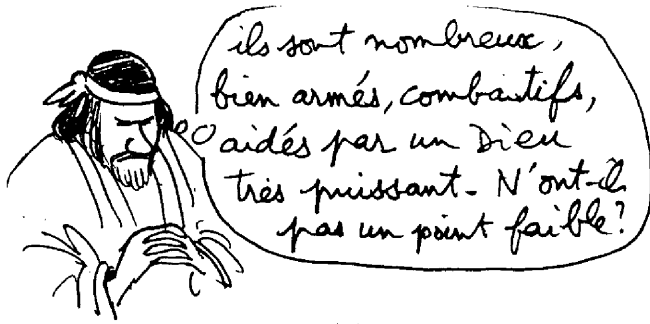 ils sont nombreux,
bien armés, combattifs,
aidés par un Dieu
très puissant - N'ont-ils
pas un point faible?